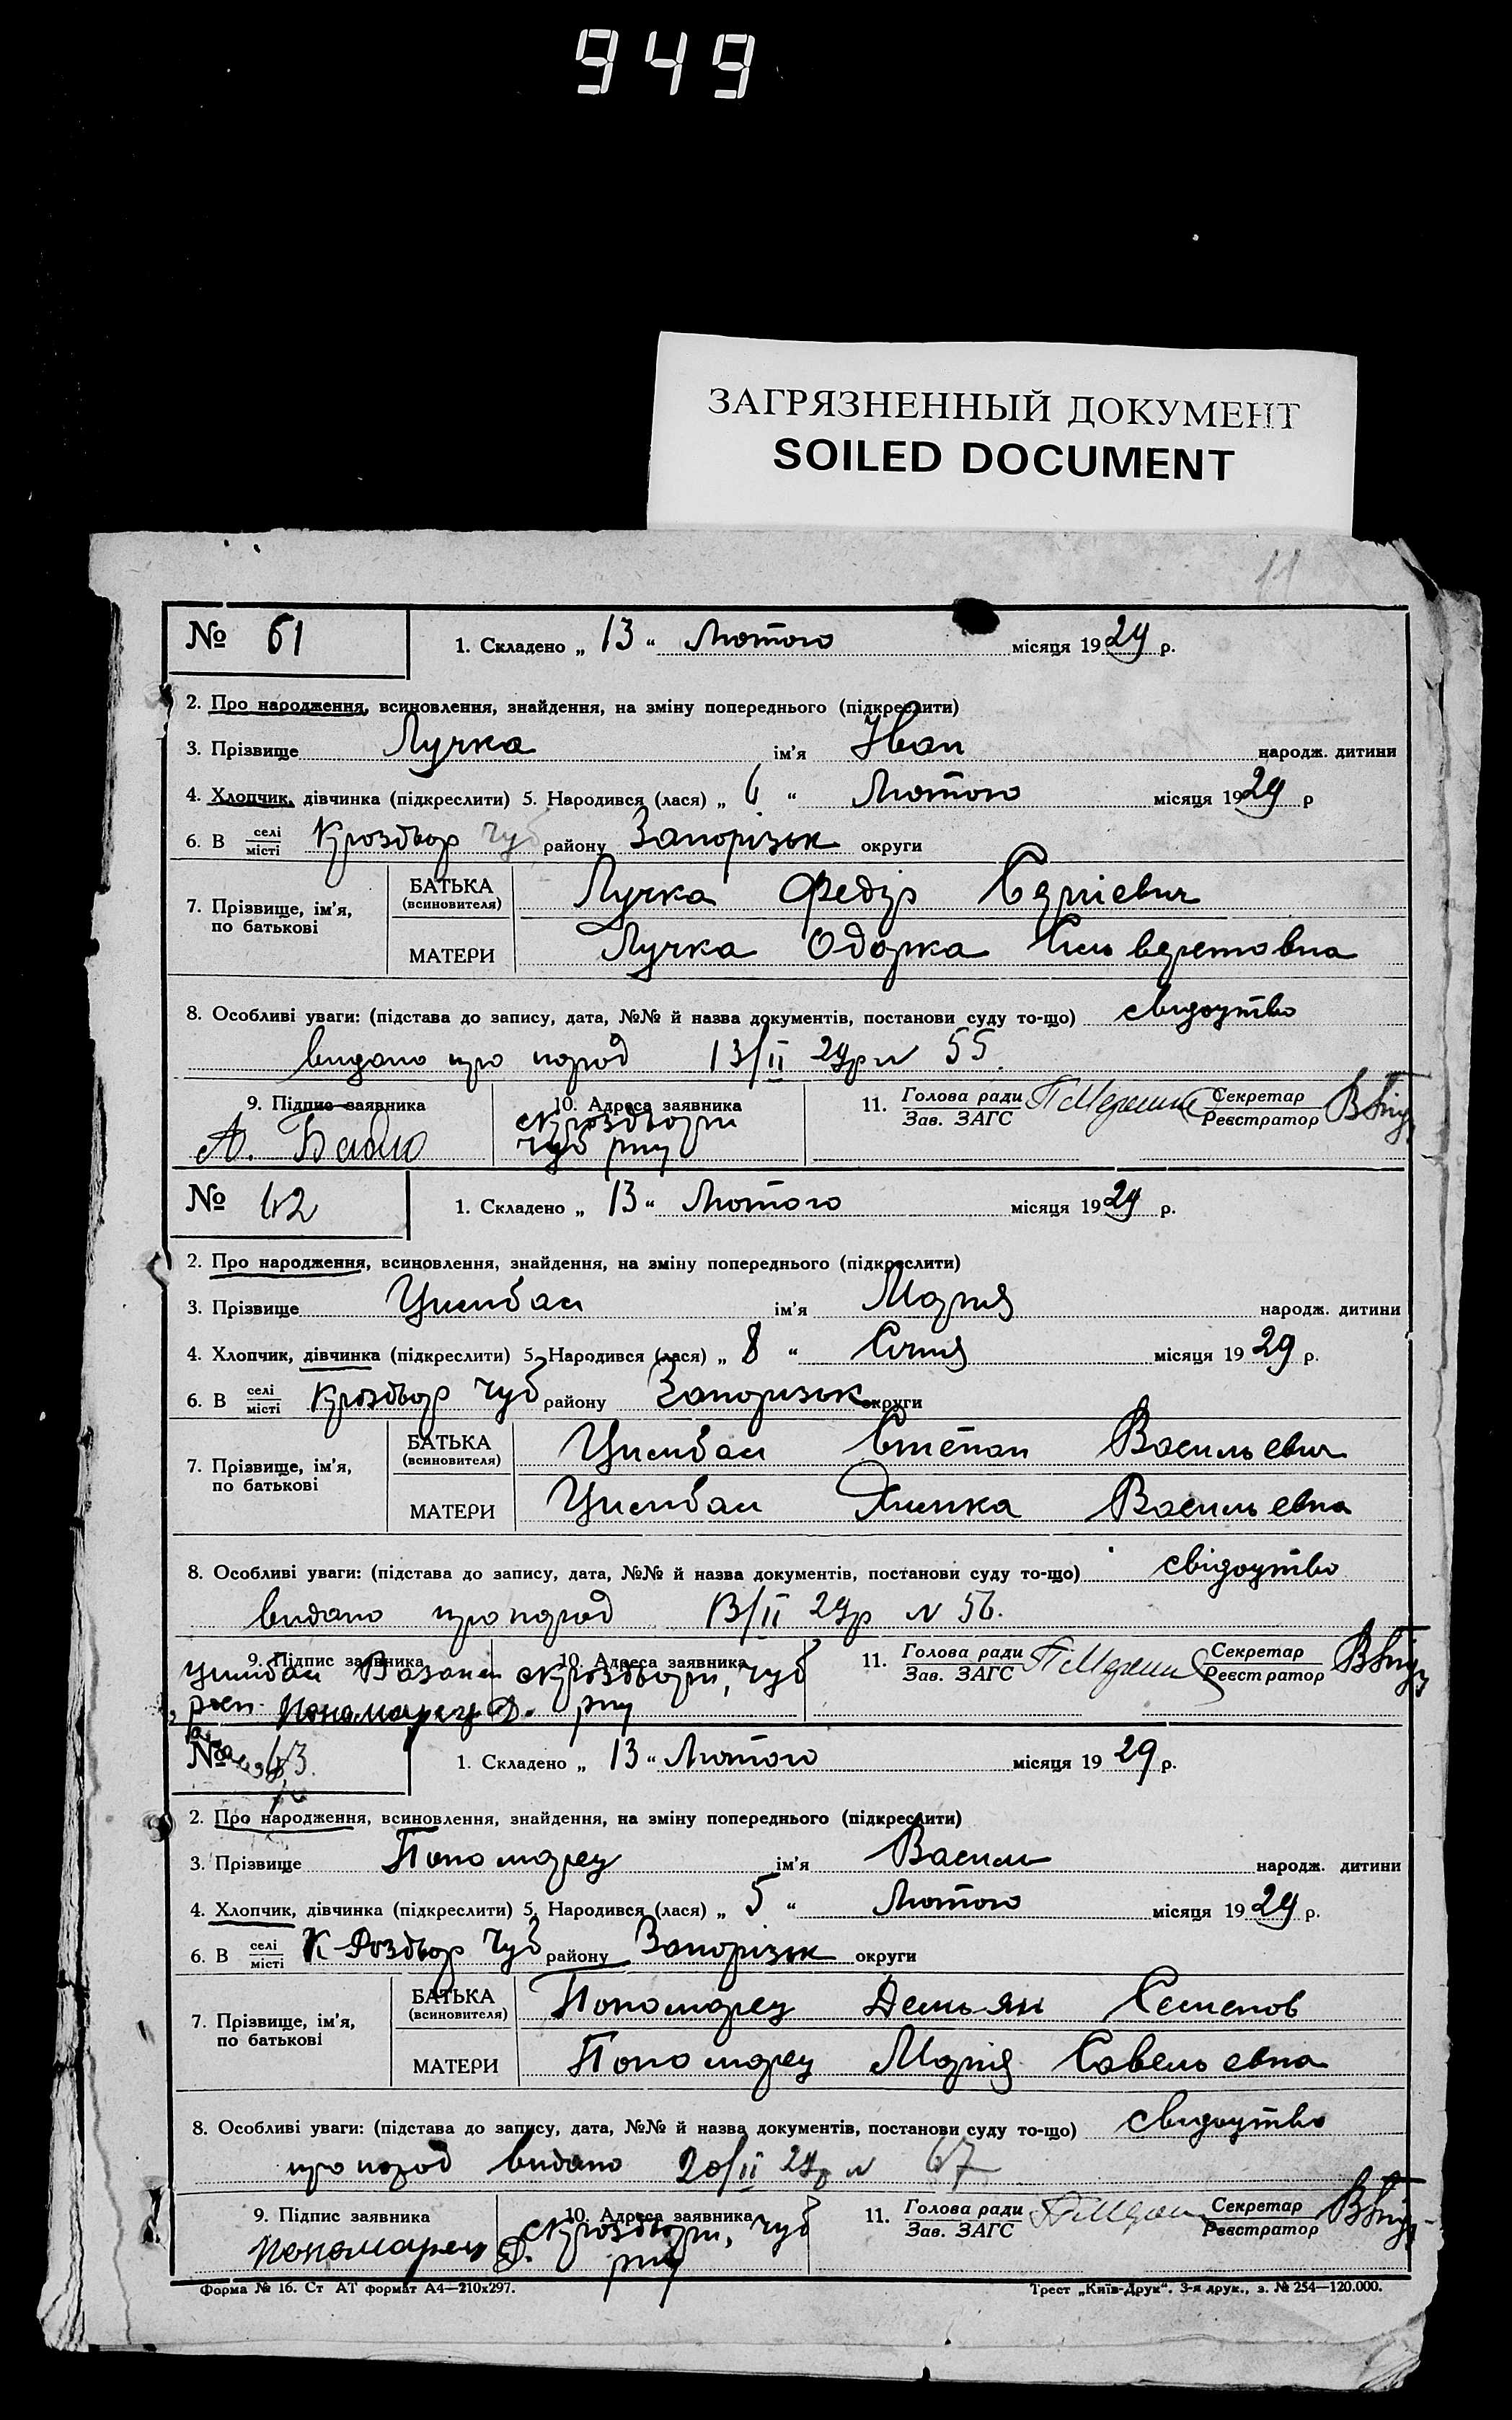 949
ЗАГРЯЗНЕННЫЙ ДОКУМЕНТ
SOILED DOCUMENT
11
№ 61 1. Складено „ 13 “ Лютого місяця 1929 р.
2. Про народження, всиновлення, знайдення, на зміну попереднього (підкреслити)
3. Прізвище Лучка ім'я Іван народж. дитини
4. Хлопчик, дівчинка (підкреслити) 5. Народився (лася) „ 6 “ Лютого місяця 1929 р
6. В селі місті Кроздвор Чуб району Запорізьк округи
7. Прізвище, ім'я, по батькові БАТЬКА (всиновителя) Лучка Федір Сергіевич
МАТЕРИ Лучка Одарка
8. Особливі уваги: (підстава до запису, дата, №№ й назва документів, постанови суду то-що) свидоцтво
видано про народ 13/II 29р N 55.
9. Підпис заявника 10. Адреса заявника 11. Голова ради Зав. ЗАГС Секретар Реєстратор
А. Бабло Чуб рну
№ 62 1. Складено „ 13 “ Лютого місяця 1929 р.
2. Про народження, всиновлення, знайдення, на зміну попереднього (підкреслити)
3. Прізвище Цимбал ім'я Марія народж. дитини
4. Хлопчик, дівчинка (підкреслити) 5. Народився (лася) „ 8 “ Січня місяця 1929 р.
6. В селі місті Кроздвор Чуб району Запоризьк округи
7. Прізвище, ім'я, по батькові БАТЬКА (всиновителя) Цимбал Степан Васильевич
МАТЕРИ Цимбал Химка Васильевна
8. Особливі уваги: (підстава до запису, дата, №№ й назва документів, постанови суду то-що) свідоцтво
видано про народ 13/II 29р N 56.
9. Підпис заявника 10. Адреса заявника 11. Голова ради Зав. ЗАГС Секретар Реєстратор
Цимбал Чуб
Пономарец Д. рну
№ 63. 1. Складено „ 13 “ Лютого місяця 1929 р.
2. Про народження, всиновлення, знайдення, на зміну попереднього (підкреслити)
3. Прізвище Пономарец ім'я Василь народж. дитини
4. Хлопчик, дівчинка (підкреслити) 5. Народився (лася) „ 5 “ Лютого місяця 1929 р.
6. В селі місті К-Роздвор Чуб району Запорізьк округи
7. Прізвище, ім'я, по батькові БАТЬКА (всиновителя) Пономарец Демьян Семенов
МАТЕРИ Пономарец Марія Савельевна
8. Особливі уваги: (підстава до запису, дата, №№ й назва документів, постанови суду то-що) свидоцтво
про народ видано 20/II 29р N 67
9. Підпис заявника 10. Адреса заявника 11. Голова ради Зав. ЗАГС Секретар Реєстратор
Пономарец Д. Чуб рну
Форма № 16. Ст АТ формат А4—210х297. Трест „Київ-Друк“. 3-я друк., з. № 254—120.000.